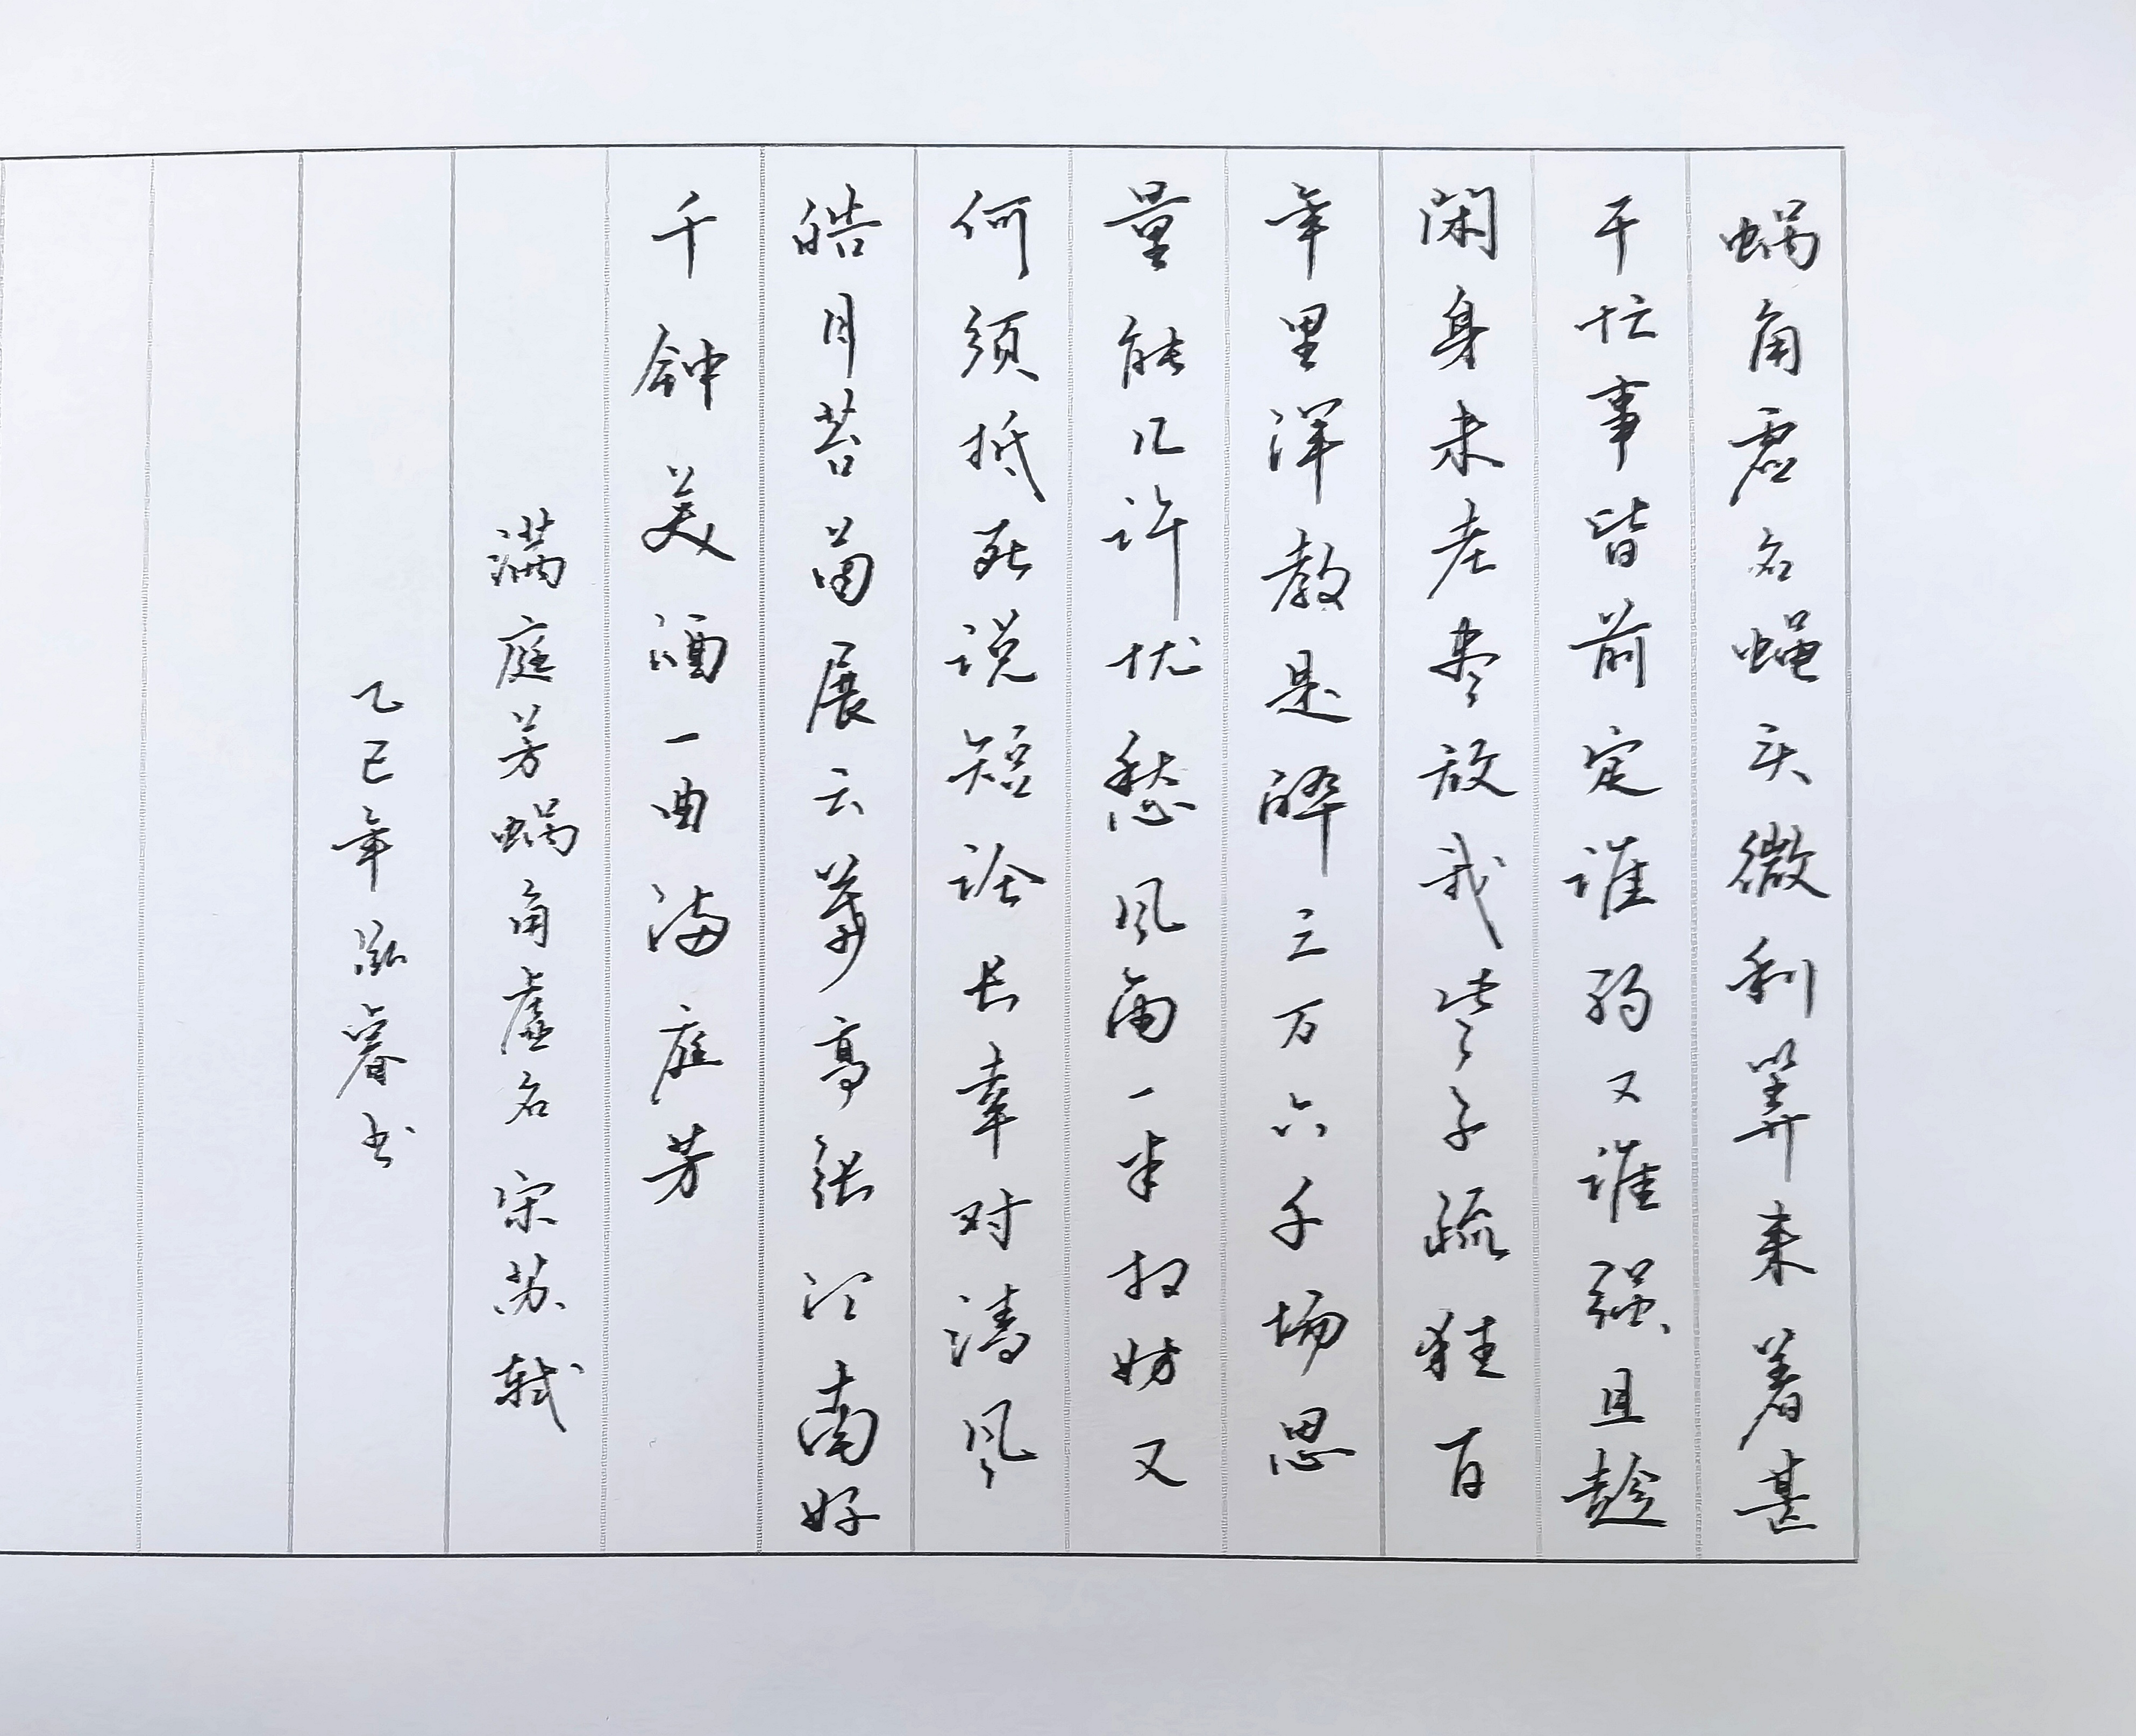 蜗角虚名蝇头微利算来着甚
干忙事皆前定谁弱又谁强且趁
闲身未老尽放我些子疏狂百
年里浑教是醉三万六千场思
量能几许忧愁风雨一半相妨又
何须抵死说短论长幸对清风
皓月苔茵展云幕高张江南好
千钟美酒一曲满庭芳
满庭芳蜗角虚名 宋苏轼
乙巳年泓睿书